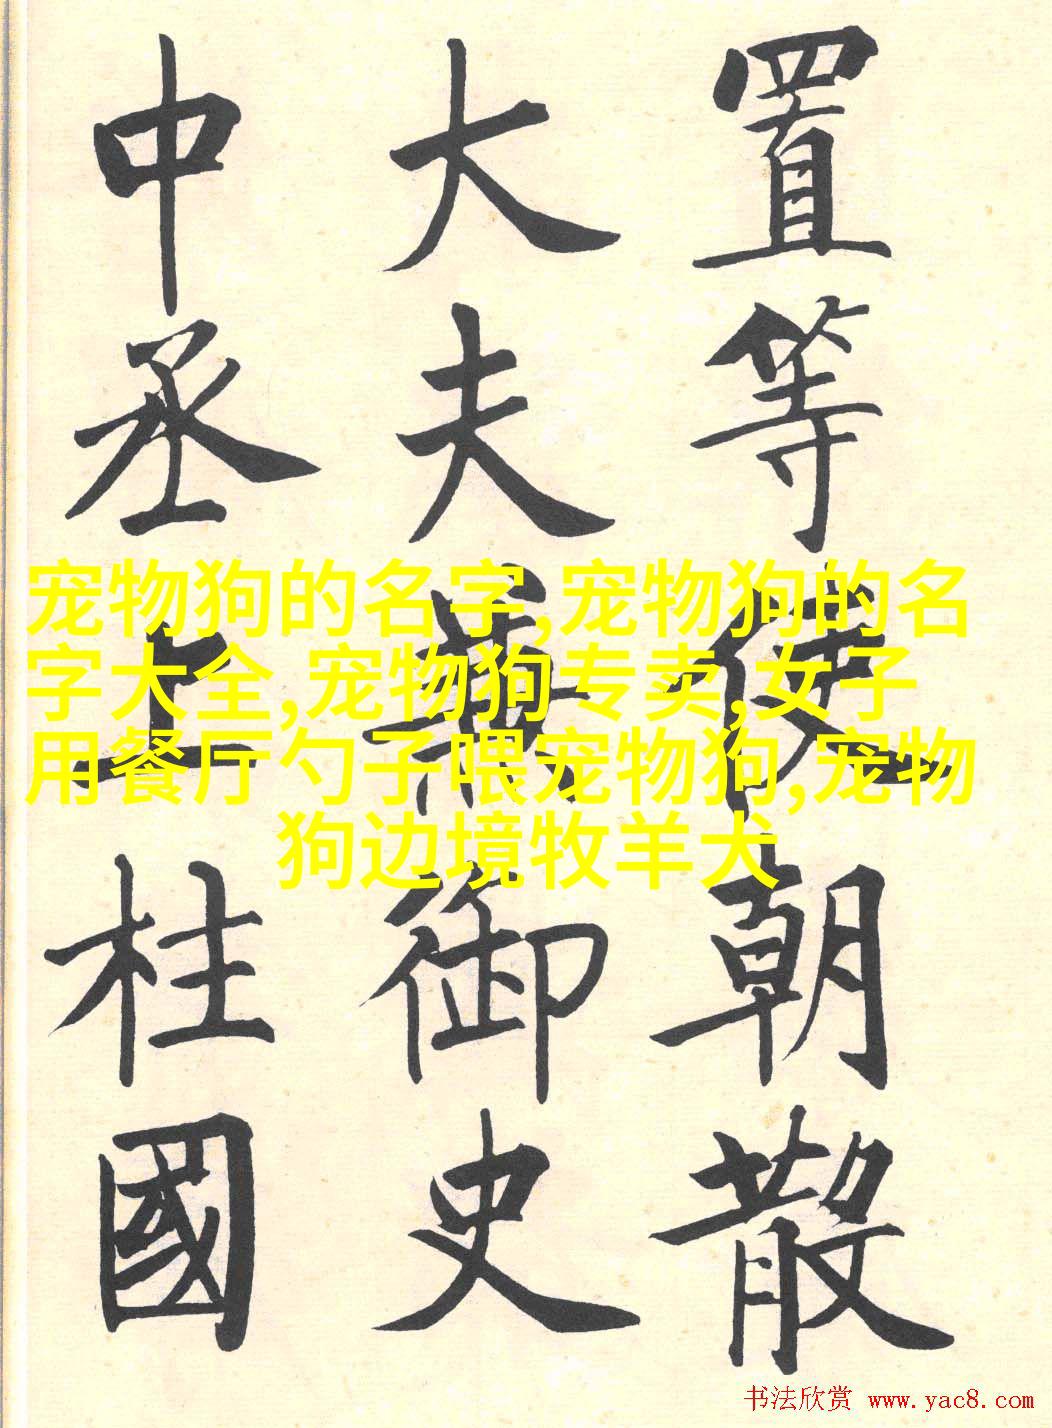 置等使朝散
大夫兼御史
中丞上柱國
宠物狗的名字,宠物狗的名
字大全,宠物狗专卖,女子
用餐厅勺子喂宠物狗,宠物
狗边境牧羊犬
书法欣赏 www.yac8.com